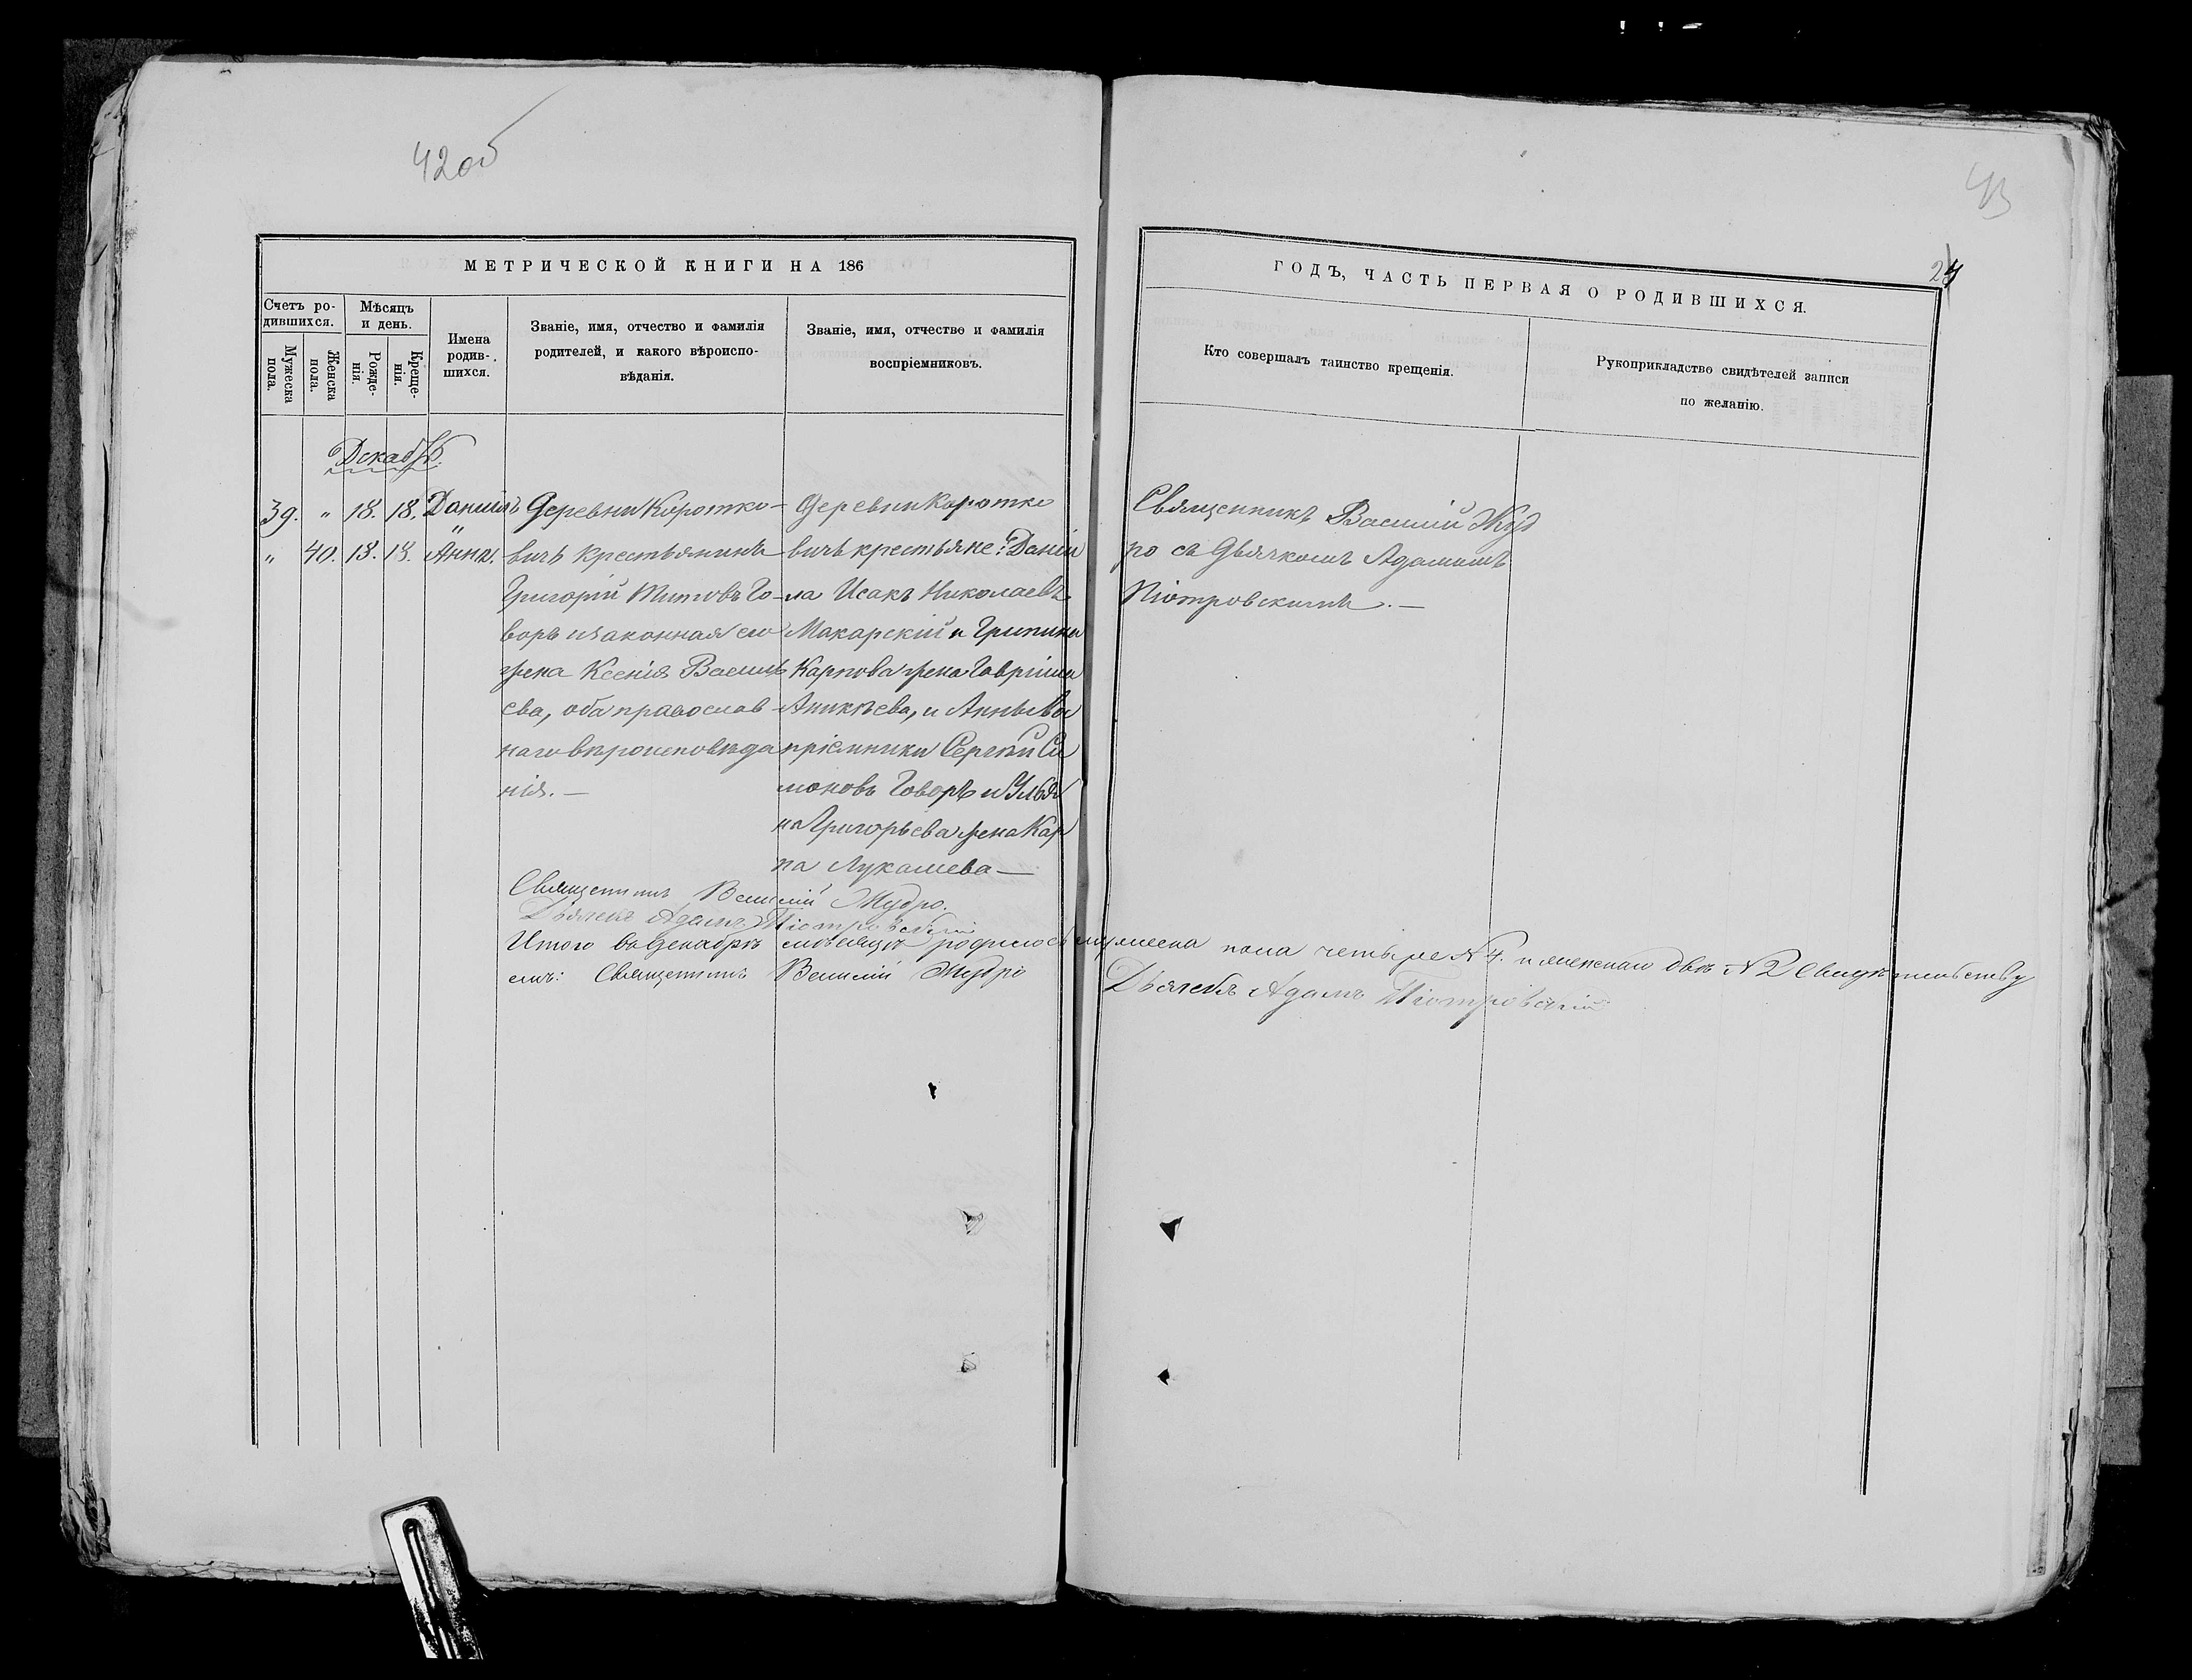 42об
43
МЕТРИЧЕСКОЙ КНИГИ НА 186
ГОДЪ, ЧАСТЬ ПЕРВАЯ О РОДИВШИХСЯ.
Счетъ ро-
дившихся.
Мужеска
пола.
Женска
пола.
Мѣсяцъ
и день.
Рожде-
нія.
Креще-
нія.
Имена
родив-
шихся.
Званіе, имя, отчество и фамилія
родителей, и какого вѣроиспо-
вѣданія.
Званіе, имя, отчество и фамилія
воспріемниковъ.
Кто совершалъ таинство крещенія.
Рукоприкладство свидѣтелей записи
по желанію.
Декабрь.
39. " 18. 18. Даніилъ
" 40. 18. 18. Анна.
Деревни Коротко-
вичъ крестьянинъ
Григорій Титовъ Го-
воръ и законная его
жена Ксенія Василь
ева, оба православ-
наго вѣроисповѣда
нія. —
Деревни Коротко
вичъ крестьяне: Даніи
ла Исакъ Николаевъ
Макарскій и Грипина
Карпова жена Гавріила
Аникѣева, и Анны Во
пріемники Сергѣй Си
моновъ Говоръ и Улья
на Григорьева жена Кар
па Лукашева —
Священникъ Василій Жуд
ро съ Дьячкомъ Адамомъ
Піотровскимъ. —
Священникъ Василій Жудро.
Дьячекъ Адамъ Піотровскій
Итого въ Декабрѣ мѣсяцѣ родилось мужеска пола четыре № 4. и женска двѣ № 2 Свидѣтельству
емъ: Священникъ Василій Жудро
Дьячекъ Адамъ Піотровскій